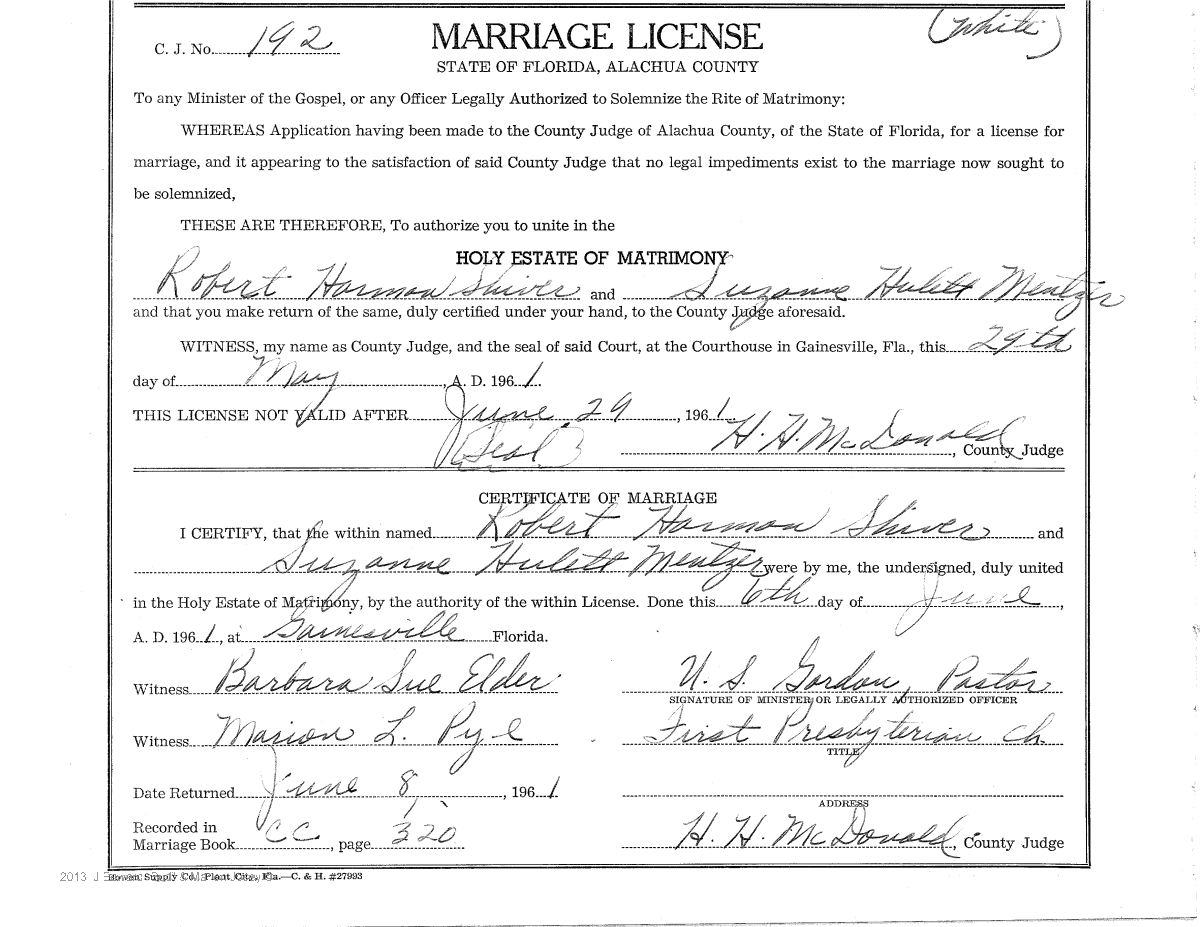 C. J. No. 192 MARRIAGE LICENSE (White)
STATE OF FLORIDA, ALACHUA COUNTY
To any Minister of the Gospel, or any Officer Legally Authorized to Solemnize the Rite of Matrimony:
WHEREAS Application having been made to the County Judge of Alachua County, of the State of Florida, for a license for
marriage, and it appearing to the satisfaction of said County Judge that no legal impediments exist to the marriage now sought to
be solemnized,
THESE ARE THEREFORE, To authorize you to unite in the
HOLY ESTATE OF MATRIMONY
Robert Harmon Shiver and Suzanne Hulett Mentzer
and that you make return of the same, duly certified under your hand, to the County Judge aforesaid.
WITNESS, my name as County Judge, and the seal of said Court, at the Courthouse in Gainesville, Fla., this 29th
day of May, A. D. 1961.
THIS LICENSE NOT VALID AFTER June 29, 1961
(Seal) H. H. McDonald, County Judge
CERTIFICATE OF MARRIAGE
I CERTIFY, that the within named Robert Harmon Shiver and
Suzanne Hulett Mentzer were by me, the undersigned, duly united
in the Holy Estate of Matrimony, by the authority of the within License. Done this 6th day of June,
A. D. 1961, at Gainesville Florida.
Witness Barbara Sue Elder U. S. Gordon, Pastor
SIGNATURE OF MINISTER OR LEGALLY AUTHORIZED OFFICER
Witness Marion L. Pyle First Presbyterian Ch.
TITLE
Date Returned June 8, 1961
ADDRESS
Recorded in
Marriage Book CC, page 320 H. H. McDonald, County Judge
2013 J Supply Co. Plant City, Fla.—C. & H. #27993